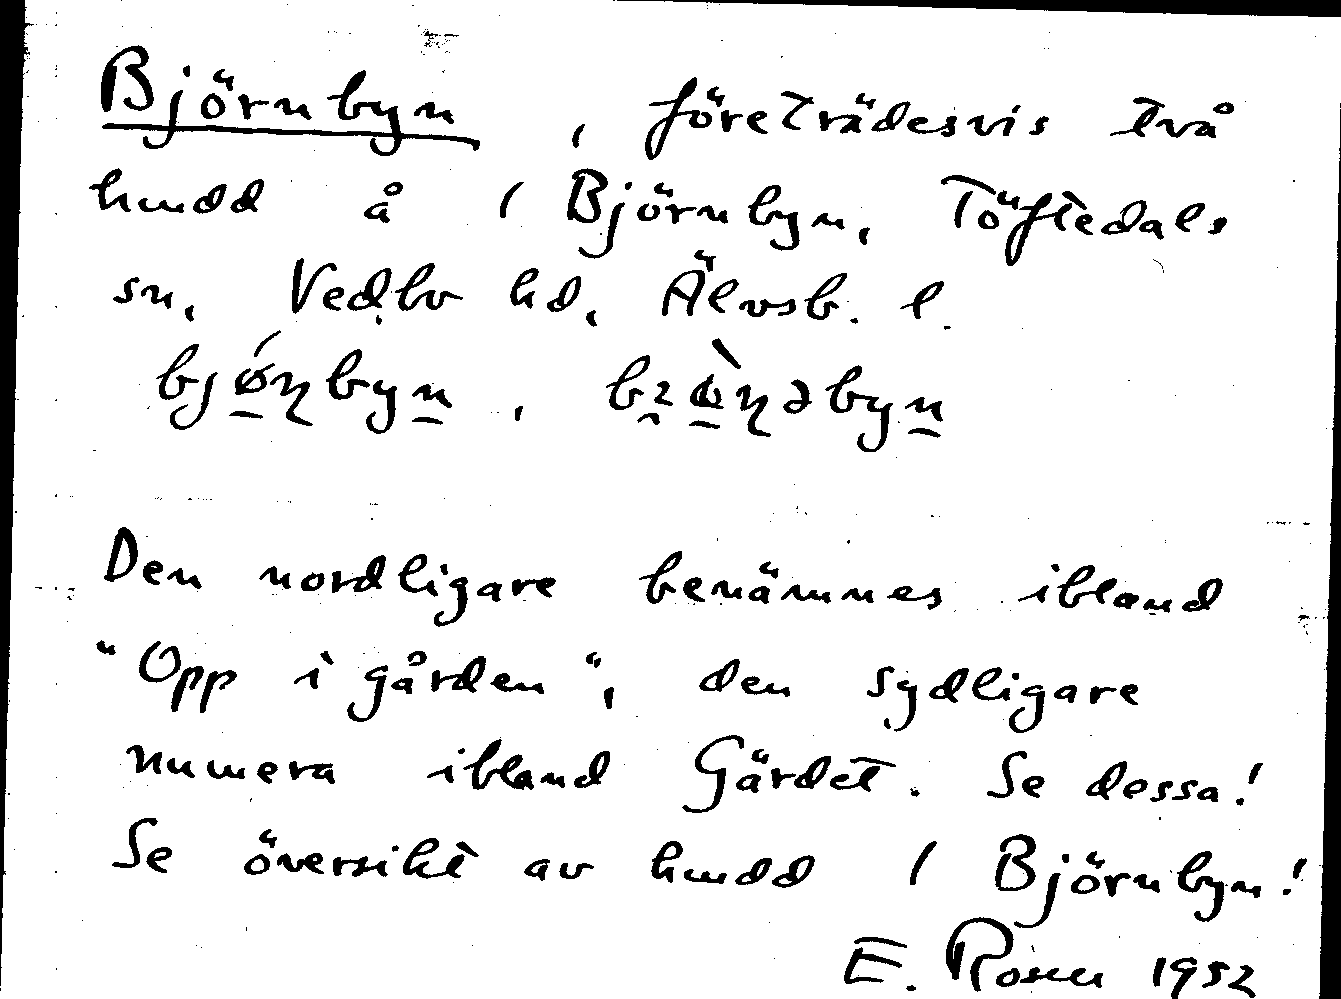 Björnbyn, företrädesvis två
hmdd å / Björnbyn, Töftedals
sn, Vedbo hd, Älvsb. l.
Den nordligare benämnes ibland
"Opp i gården", den sydligare
numera ibland Gärdet. Se dessa!
Se översikt av hmdd / Björnbyn!
E. Rosen 1952